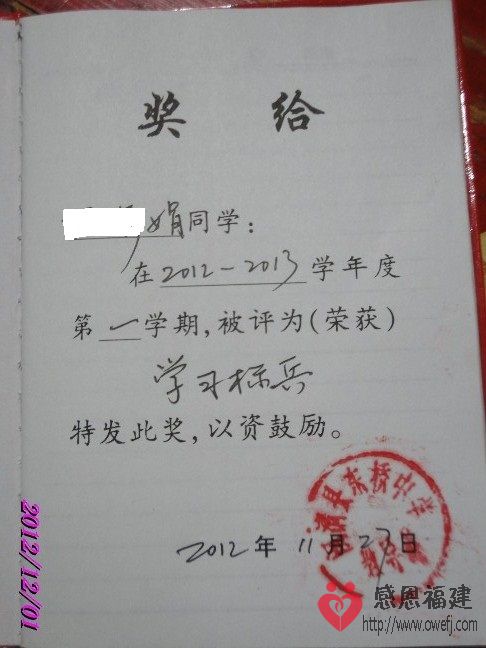 奖 给
娟同学：
在2012-2013学年度
第一学期，被评为（荣获）
学习标兵
特发此奖，以资鼓励。
县东桥中学
2012年 11月23日
2012/12/01
感恩福建
http://www.owefj.com